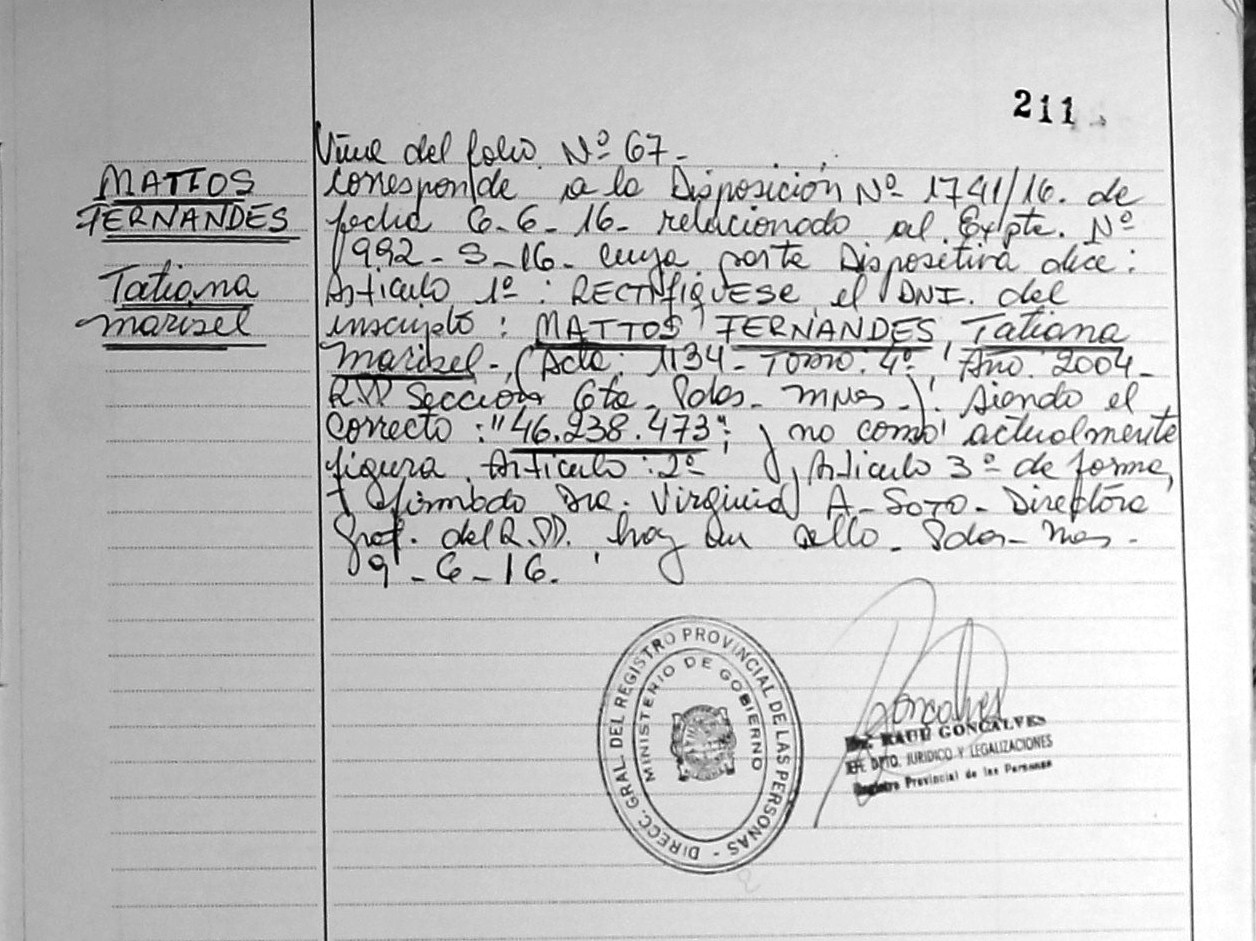 211
MATTOS
FERNANDES
Tatiana
marisel
Viene del folio Nº 67-
corresponde a la Disposición Nº 1741/16. de
fecha 6-6-16- relacionado al Expte. Nº
992-S-16- cuya parte Dispositiva dice:
Artículo 1º: RECTIFIQUESE el DNI. del
inscripto: MATTOS FERNANDES, Tatiana
marisel-, (Acta: 1134- Tomo: 4º, Año: 2004-
Sección 6ta. Pdas- mnes-). siendo el
correcto: "46.238.473"; y no como actualmente
figura. Artículo: 2º y Artículo 3º de forma,
firmado Dra. Virginia A- SOTO- Directora
Gral. del R.PP. hay un sello- Pdas- mes-
9-6-16.
DIRECC. GRAL. DEL REGISTRO PROVINCIAL DE LAS PERSONAS -
MINISTERIO DE GOBIERNO
Goncalves
Dr. RAUL GONCALVES
JEFE DPTO. JURIDICO Y LEGALIZACIONES
Registro Provincial de las Personas